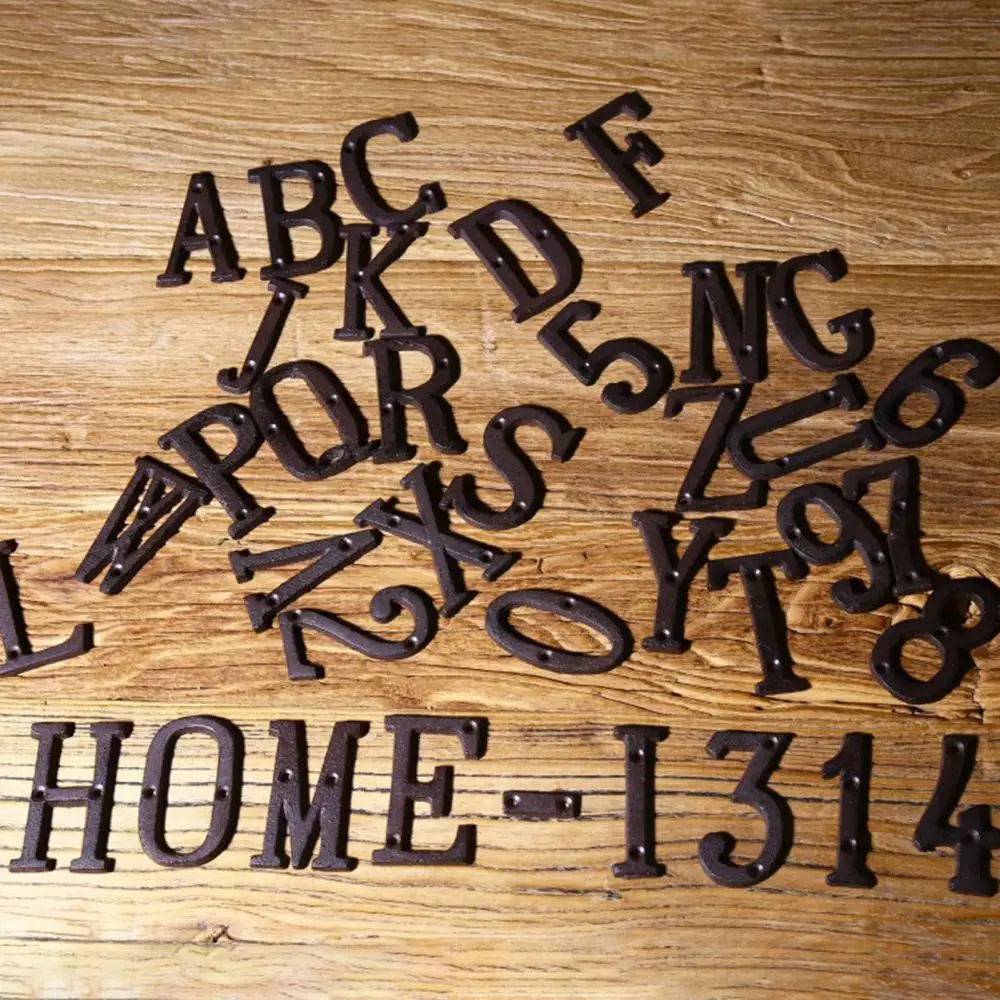 A B C F
J K D 5 N G
P Q R S Z U 6
W V X Y 9 7
L 2 0 T 8
HOME-I314